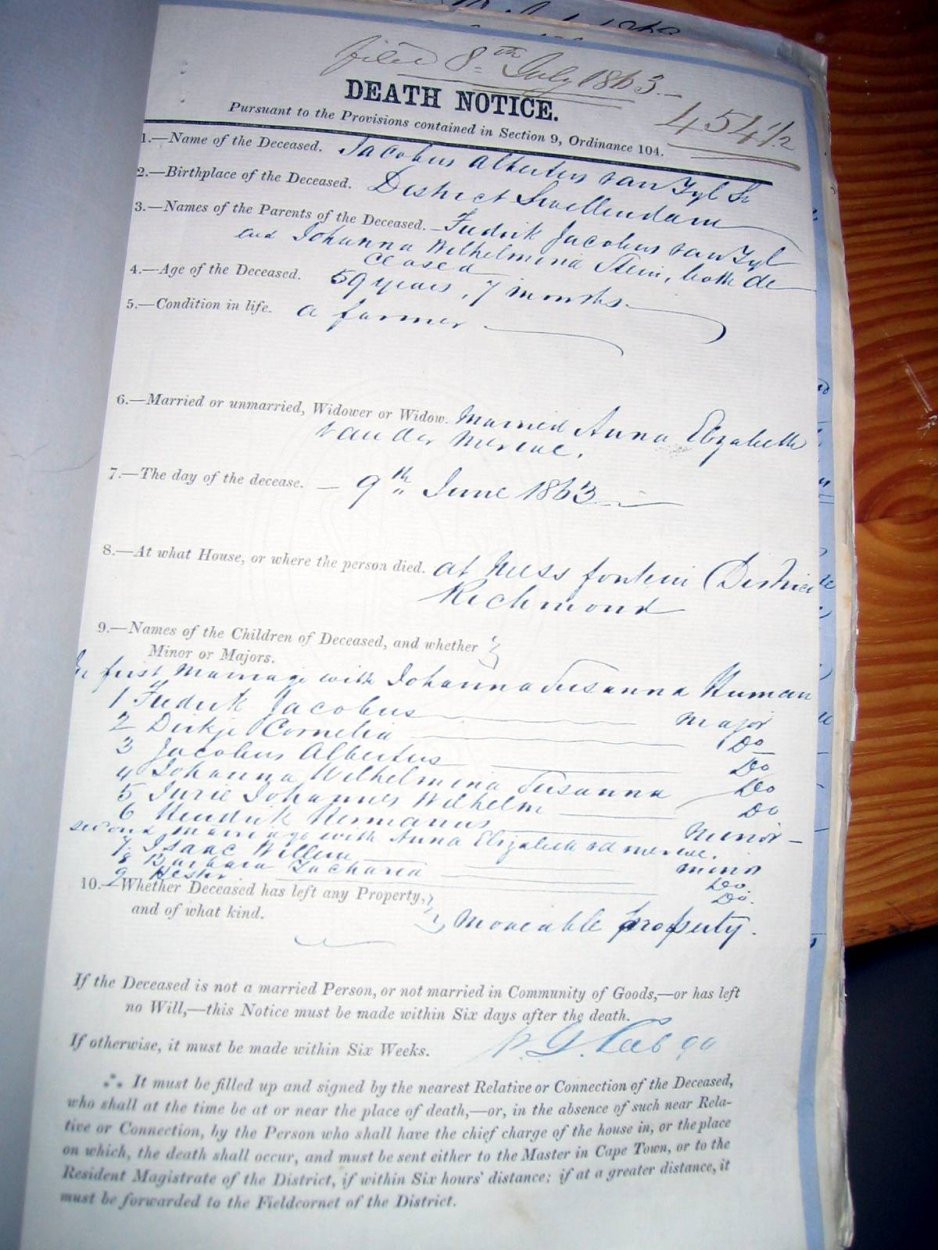 filed 8th July 1863.—
DEATH NOTICE.
4541/2
Pursuant to the Provisions contained in Section 9, Ordinance 104.
1.—Name of the Deceased. Jacobus Albertus van Zyl Sr
2.—Birthplace of the Deceased. District Swellendam
3.—Names of the Parents of the Deceased.— Fredrik Jacobus van Zyl
and Johanna Wilhelmina Stein, both de
ceased
4.—Age of the Deceased. 59 years, 7 months.
5.—Condition in life. a farmer
6.—Married or unmarried, Widower or Widow. Married Anna Elizabeth
van der Merwe.
7.—The day of the decease. — 9th June 1863—
8.—At what House, or where the person died. at fontein (District
Richmond
9.—Names of the Children of Deceased, and whether
Minor or Majors.
In first marriage with Johanna Susanna Human
1 Fredrik Jacobus major
2 Dirkje Cornelia Do
3 Jacobus Albertus Do
4 Johanna Wilhelmina Susanna Do
5 Jurie Johannes Wilhelm Do
6 Hendrik Hermanus minor—
second marriage with Anna Elizabeth vd merwe.
7 Isaac Willem minor
8 Barbara Zacharia Do.
9 Hester Do.
10.—Whether Deceased has left any Property,
and of what kind. Moveable property.
If the Deceased is not a married Person, or not married in Community of Goods,—or has left
no Will,—this Notice must be made within Six days after the death.
If otherwise, it must be made within Six Weeks.
∴ It must be filled up and signed by the nearest Relative or Connection of the Deceased,
who shall at the time be at or near the place of death,—or, in the absence of such near Rela-
tive or Connection, by the Person who shall have the chief charge of the house in, or the place
on which, the death shall occur, and must be sent either to the Master in Cape Town, or to the
Resident Magistrate of the District, if within Six hours' distance; if at a greater distance, it
must be forwarded to the Fieldcornet of the District.